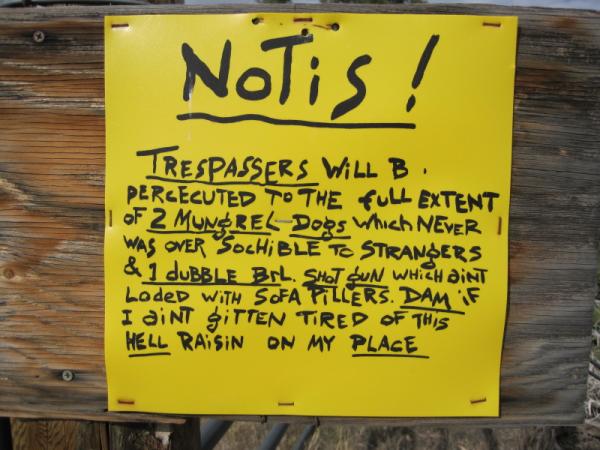 NoTis !
TRESPASSERS WILL B.
PERCECUTED TO THE FULL EXTENT
OF 2 MUNGREL-DOGS WHICH NEVER
WAS OVER SOCHIBLE TO STRANGERS
& 1 DUBBLE BRL. SHOT GUN WHICH AINT
LODED WITH SOFA PILLERS. DAM IF
I AINT GITTEN TIRED OF THIS
HELL RAISIN ON MY PLACE